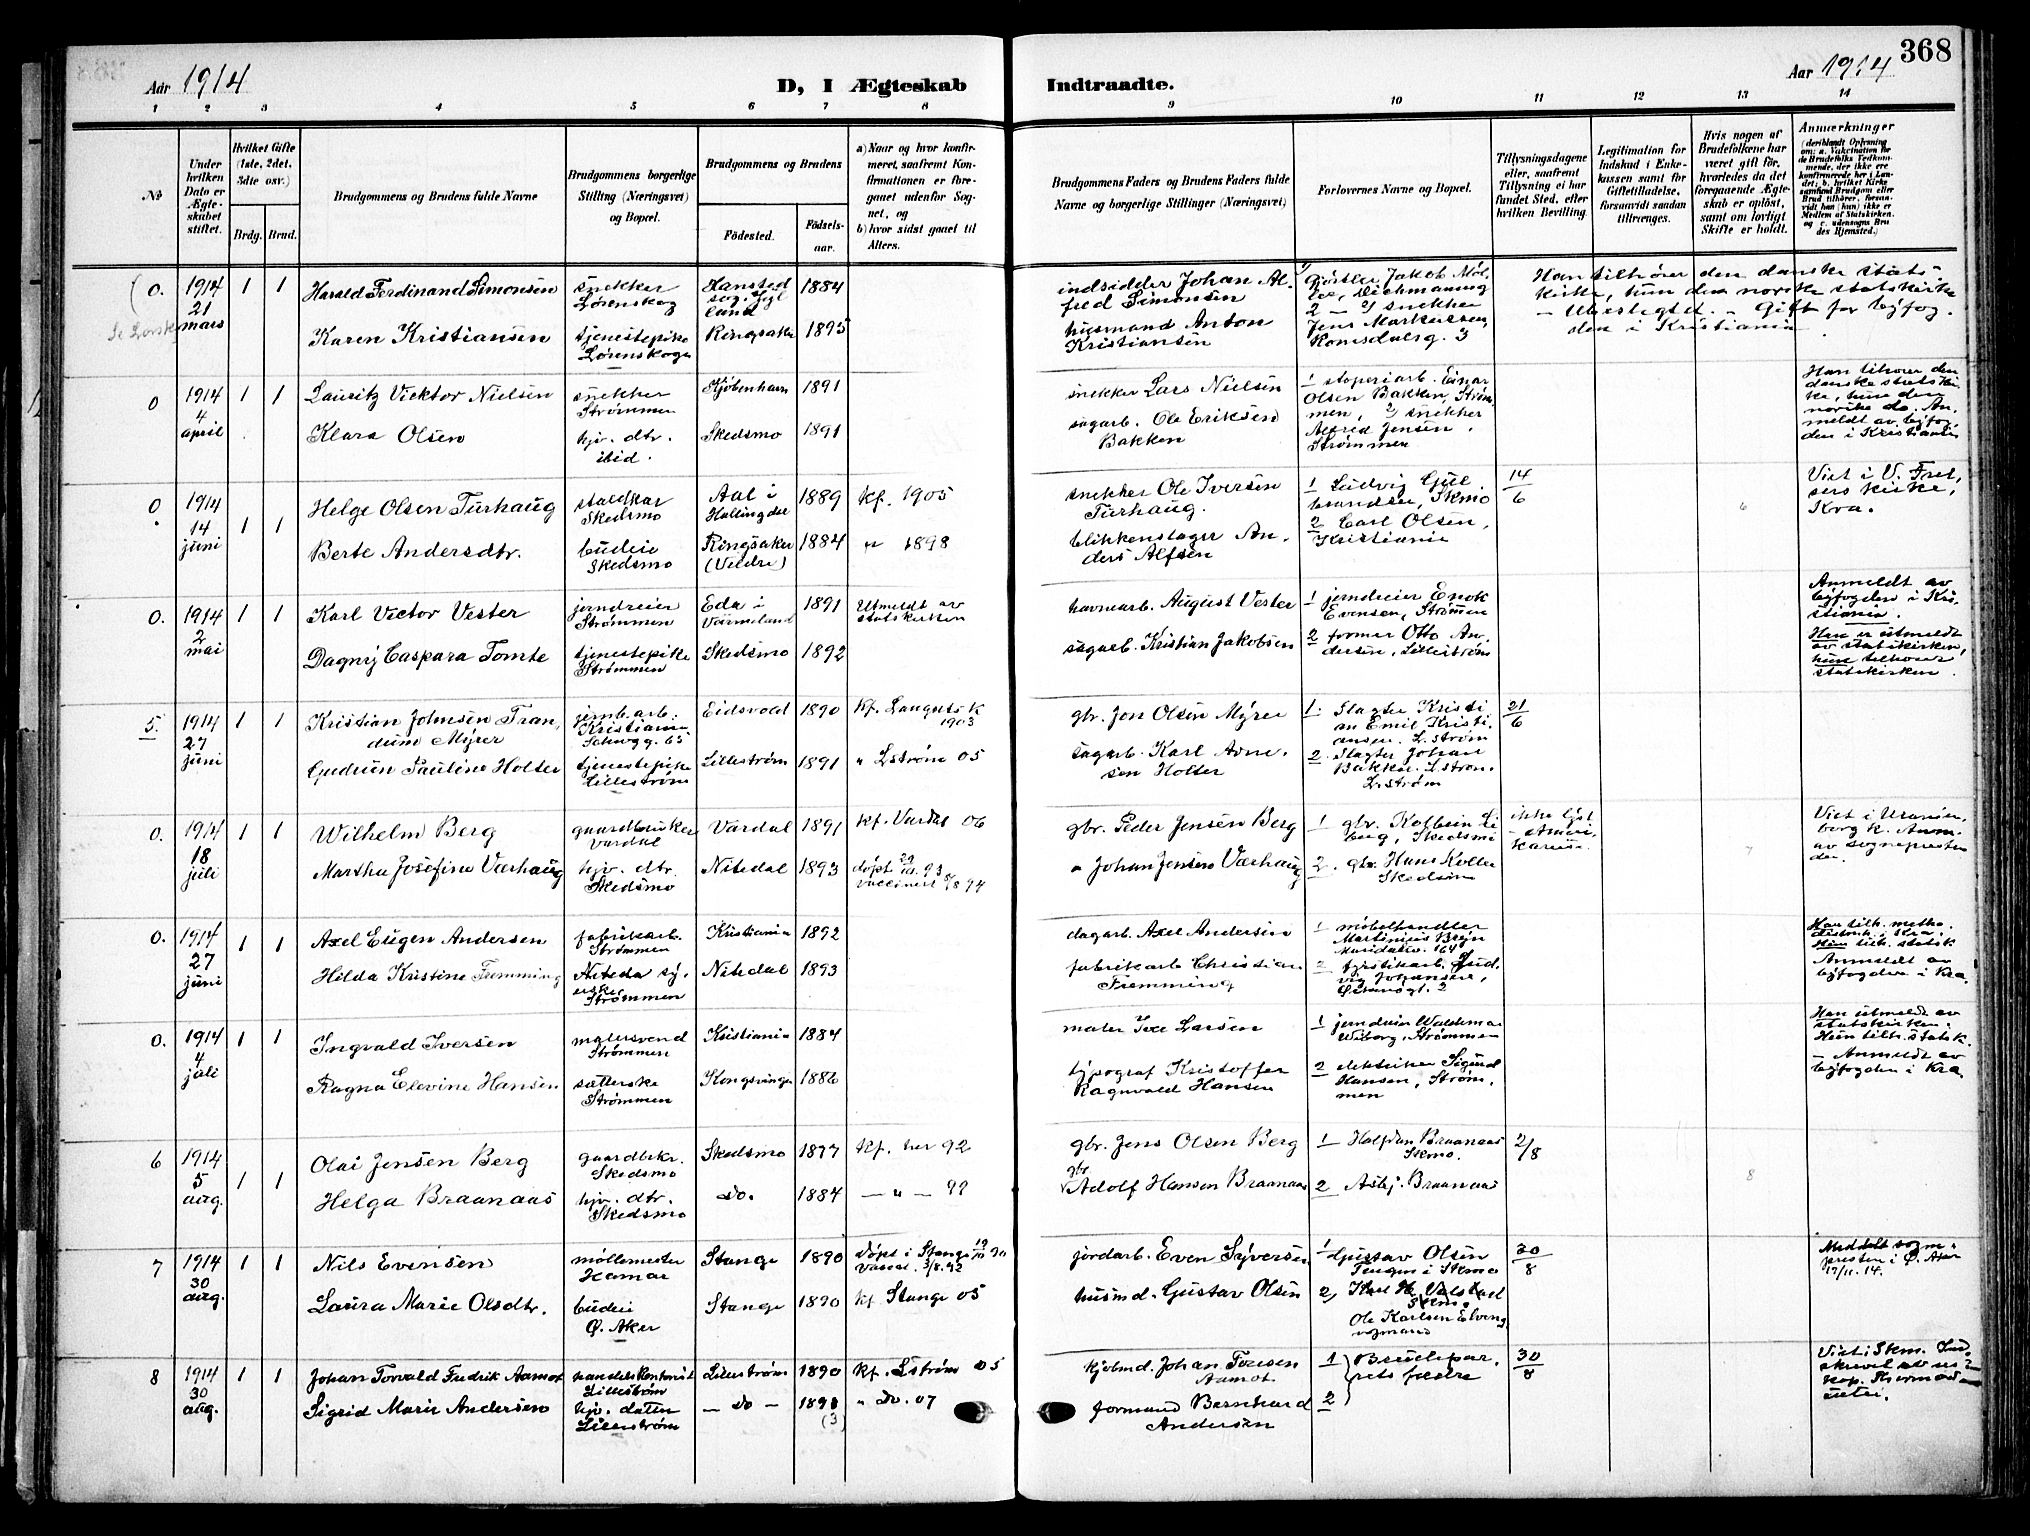 Aar 1914
D, I Ægteskab
Indtraadte.
Aar 1914
368
1 2 3 4 5 6 7 8 9 10 11 12 13 14
No
Under hvilken Dato er Ægteskabet stiftet.
Hvilket Gifte (1ste, 2det, 3die osv.)
Brdg. Brud.
Brudgommens og Brudens fulde Navne
Brudgommens borgerlige Stilling (Næringsvei) og Bopæl.
Brudgommens og Brudens
Fødested.
Födselsaar.
a) Naar og hvor konfirmeret, saafremt Konfirmationen er foregaaet udenfor Sognet, og
b) hvor sidst gaaet til Alters.
Brudgommens Faders og Brudens Faders fulde Navne og borgerlige Stillinger (Næringsvei)
Forlovernes Navne og Bopæl.
Tillysningsdagene eller, saafremt Tillysning ei har fundet Sted, efter hvilken Bevilling.
Legitimation for Indskud i Enkekassen samt for Giftetilladelse, forsaavidt saadan tiltrænges.
Hvis nogen af Brudefolkene har været gift før, hvorledes da det foregaaende Ægteskab er opløst, samt om lovligt Skifte er holdt.
Anmerkninger
(deriblandt Oplysning om: a. Vakcination for de Brudefolks Vedkommende, der ikke ere konfirmerede her i Landet; b. hvilket Kirkesamfund Brudgom eller Brud tilhører, forsaavidt han (hun) ikke er Medlem af Statskirken, og c. udensogns Brudes Hjemsted.)
0. 1914 21 mars 1 1
Harald Ferdinand Simonsen
snekker Lørenskog
1884
indsidder Johan Alfred Simonsen
2 snekker Jens Markussen, Romsdalsg. 3
Han tilhører den danske statskirke, hun den norske statskirke
- Ubeslegtet. - Gift for byfogden i Kristiania
Karen Kristiansen
tjenestepike Lørenskogen
Ringsaker 1895
husmand Anton Kristiansen
0 1914 4 april 1 1
Lauritz Vicktor Nielsen
snekker Strømmen
Kjøbenhavn 1891
snekker Lars Nielsen
1 stoperiarb. Einar Olsen Bakken, Strømmen, 2 snekker Alfred Jensen, Strømmen
Han tilhører den danske statskirke, hun den norske do. Anmeldt av byfogden i Kristiania
Klara Olsen
hjv. dtr. ibid.
Skedsmo 1891
sagarb. Ole Eriksen Bakken
0 1914 14 juni 1 1
Helge Olsen Turhaug
staldkar Skedsmo
Aal i Hallingdal 1889 kf. 1905
snekker Ole Iversen Turhaug.
1 Ludvig Gulbrandsen, Skmo
2 Carl Olsen, Kristiania
14/6
6
Viet i V. Frelsers kirke, Kra.
Berte Andersdtr.
budeie Skedsmo
Ringsaker (Veldre) 1884 " 1898
blikkenslager Anders Alfsen
0. 1914 2 mai 1 1
Karl Victor Vester
jerndreier Strømmen
Eda i Värmeland 1891 Utmeldt av statskirken
havnearb. August Vester
1 jerndreier Enok Evensen, Strømmen
Anmeldt av byfogden i Kristiania.
Han er utmeldt av statskirken, hun tilhører statskirken.
Dagny Caspara Tomte
tjenestepike Strømmen
Skedsmo 1892
sagarb. Kristian Jakobsen
2 former Otto Andersen, Lillestrøm
5. 1914 27 juni 1 1
Kristian Johnsen Trandum Myrer
jernb.arb. Kristiania
Eidsvold 1890 kf. Langets K 1903
gbr. Jon Olsen Myrer
1. Slagter Kristian Emil Kristiansen. L.strøm
21/6
Gudrun Pauline Holter
tjenestepike Lillestrøm
Lillestrøm 1891 " Lstrøm 05
sagarb. Karl Arnesen Holter
2. Slagter Johan Bakken. L.strøm.
L.strøm
0. 1914 18 juli 1 1
Wilhelm Berg
gaardbruker Vardal
Vardal 1891 kf. Vardal 06
gbr. Peder Jensen Berg
1 gbr. Kolbein Liberg, Skedsmo
ikke lyst
7
Martha Josefine Værhaug
hjv. dtr. Skedsmo
Nitedal 1893 døpt 29/10.93 vaccinert 8/8 94
" Johan Jensen Værhaug
2. gbr. Hans Koller Skedsmo
0. 1914 27 juni 1 1
Axel Eugen Andersen
fabrikarb. Strømmen
Kristiania 1892
dagarb. Axel Andersen
1 møbelhandler Martinius Bryn
Han tilh. methodistmk. i Kra. Hun tilh. statsk. Anmeldt av byfogden i Kra.
Hilda Kristine Flemming
Strømmen
Nitedal 1893
fabrikarb Christian Fremming
2 Ludvig Johansen,
0. 1914 4 juli 1 1
Ingvald Iversen
malersvend Strømmen
Kristiania 1884
maler Iver Larsen
1 jerndreier Waldemar Wiborg, Strømmen
Han utmeldt av statskirken. Hun tilh. statsk. - Anmeldt av byfogden i Kra.
Ragna Elevine Hansen
sætterske Strømmen
Kongsvinger 1886
typograf Kristoffer Ragnvald Hansen
2 elektriker Sigurd Hansen, Strømmen
6 1914 5 aug. 1 1
Olai Jensen Berg
gaardbrkr. Skedsmo
Skedsmo 1877 kf. her 92
gbr. Jens Olsen Berg
1 Halfdan Braanaas Skmo.
2/8
8
Helga Braanaas
hjv. dtr. Skedsmo
Do. 1884 — " — 99
gbr Adolf Hansen Braanaas
2 Asbj. Braanaas
7 1914 30 aug. 1 1
Nils Evensen
møllemester Hamar
Stange 1890 døpt i Stange 19/10 90
jordarb. Even Syversen
1 Gustav Olsen Teigen i Skmo
30/8
Meddelt sognepresten i Ø. Aker 17/11. 14.
Laura Marie Olsdtr.
budeie Ø. Aker
Stange 1890 kf. Stange 05
husmd. Gustav Olsen
2, Karl H. Valstad Skmo.
Ole Karlsen Elveng vognmand
8 1914 30 aug. 1 1
Johan Torvald Fredrik Aamot
handelskontorist Lillestrøm
Lillestrøm 1890 kf. Lstrøm 05
kjøbmd. Johan Toresen Aamot
1 2 Brudeparrets fædre
30/8
Sigrid Marie Andersen
hjv. datter Lillestrøm
— Do — 1893 (3) " Do. 07
formand Bernhard Andersen